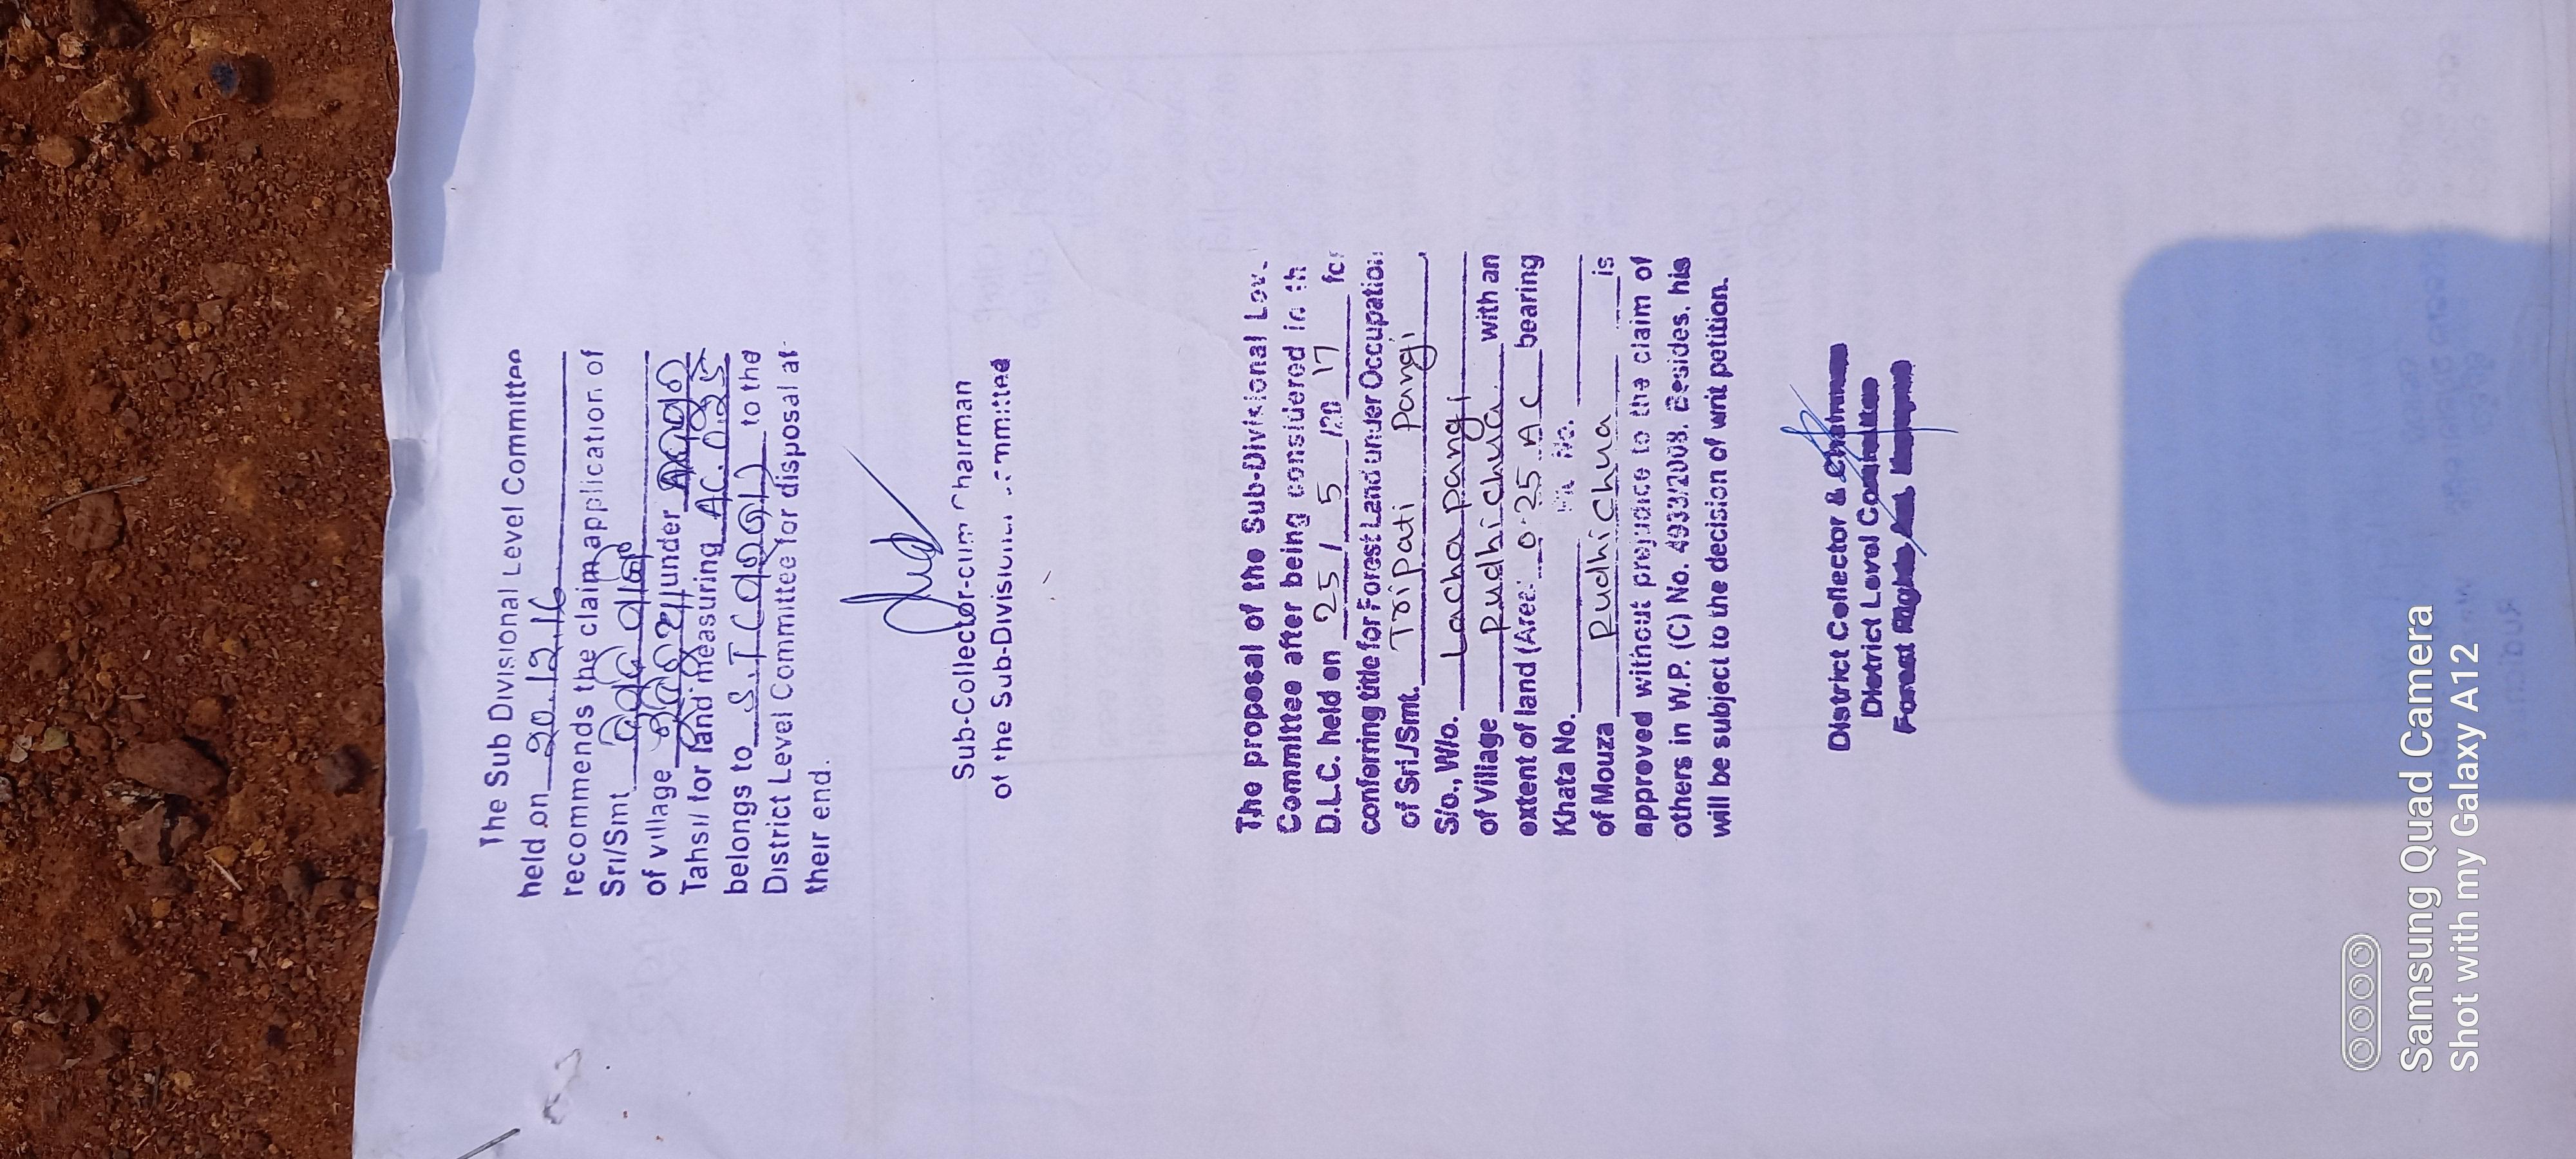 The Sub Divisional Level Committee
held on 20.12.16
recommends the claim application of
Sri/Smt
of village under
Tahsil for land measuring AC. 0.25
belongs to S.T to the
District Level Committee for disposal at
their end.
Sub-Collector-cum Chairman
of the Sub-Divisional Committee
The proposal of the Sub-Divisional Lev
Committee after being considered in th
D.L.C. held on 25 / 5 /20 17 for
conferring title for Forest Land under Occupation
of Sri./Smt. Tripati Pangi,
S/o., W/o. Lacha Pangi
of Village Pudhichua with an
extent of land (Area: 0.25 AC bearing
Khata No. No.
of Mouza Pudhichua is
approved without prejudice to the claim of
others in W.P. (C) No. 4933/2008. Besides, his
will be subject to the decision of writ petition.
District Collector & Chairman
District Level Committee
Forest Rights Act,
Samsung Quad Camera
Shot with my Galaxy A12